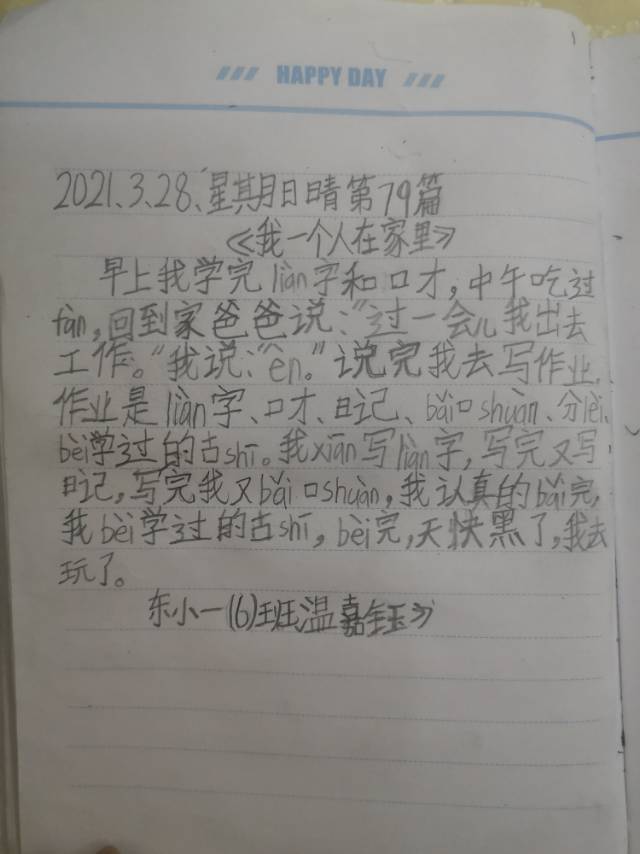 HAPPY DAY
2021.3.28.星期日晴第79篇
《我一个人在家里》
早上我学完liàn字和口才，中午吃过
fàn，回到家爸爸说："过一会儿我出去
工作。"我说："èn。"说完我去写作业，
作业是liàn字、口才、日记、bǎi口shuàn、分lèi、
bèi学过的古shī。我xiān写liàn字，写完又写
日记，写完我又bǎi口shuàn，我认真的bǎi完，
我bèi学过的古shī，bèi完，天快黑了，我去
玩了。
东小一(6)班温嘉钰》